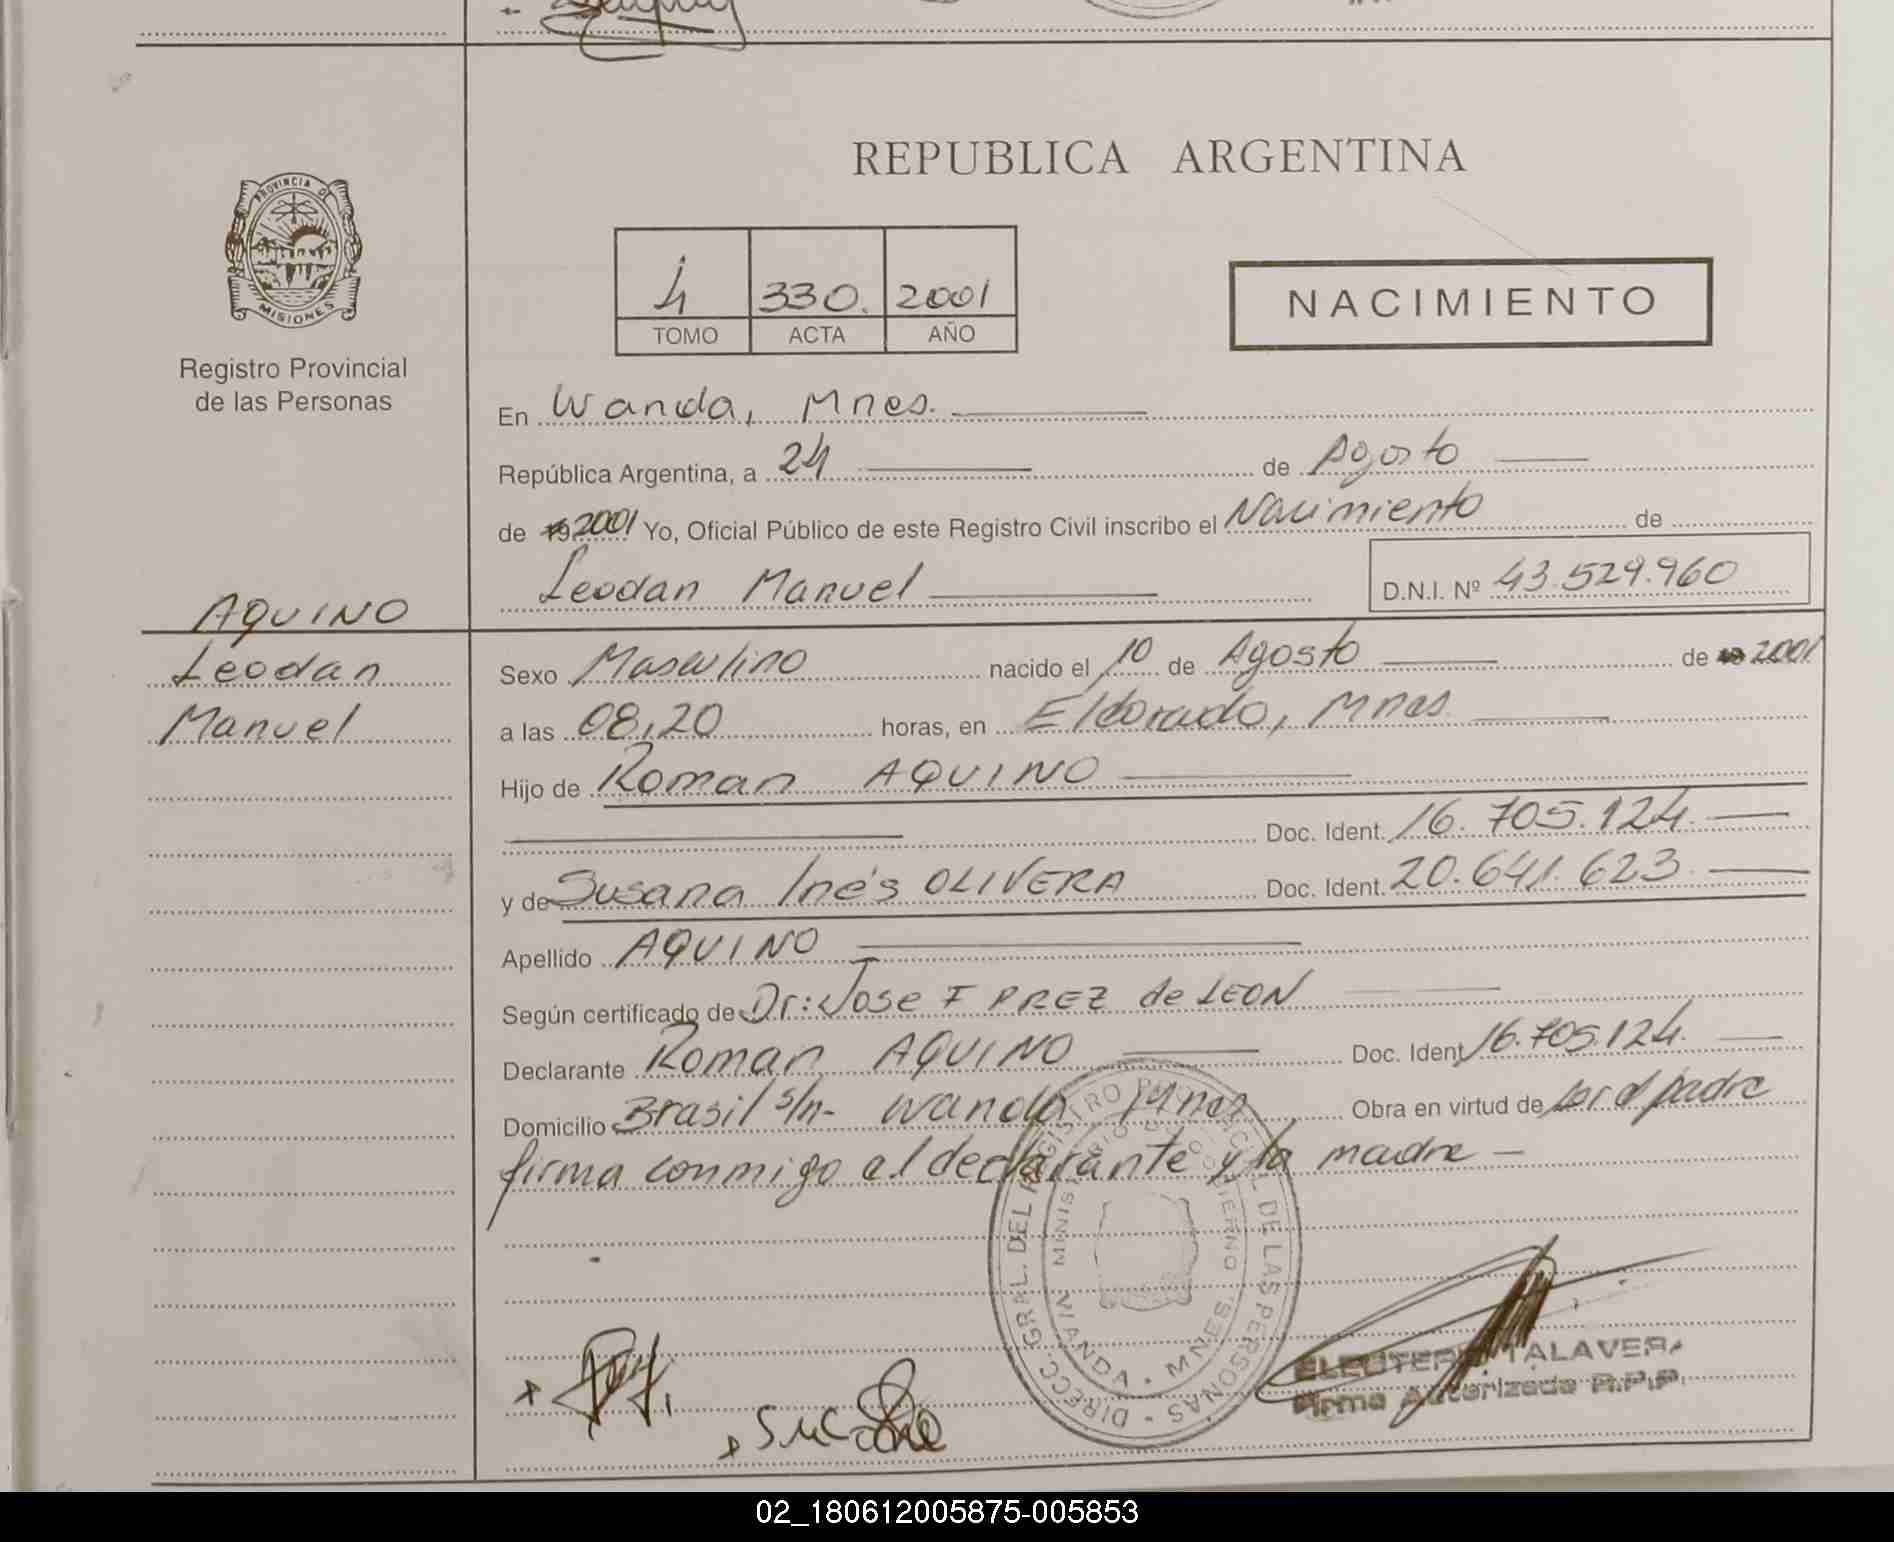 REPUBLICA ARGENTINA
PROVINCIA DE
MISIONES
Registro Provincial
de las Personas
4 330. 2001
TOMO ACTA AÑO
NACIMIENTO
En Wanda, Mnes.
República Argentina, a 24 de Agosto
de 19 2001 Yo, Oficial Público de este Registro Civil inscribo el Nacimiento de
Leodan Manuel D.N.I. Nº 43.529.960
AQUINO
Leodan
Manuel
Sexo Masculino nacido el 10 de Agosto de 2001
a las 08,20 horas, en Eldorado, Mnes.
Hijo de Roman AQUINO
Doc. Ident. 16.705.124.
y de Susana Inés OLIVERA Doc. Ident. 20.641.623
Apellido AQUINO
Según certificado de Dr: Jose F PREZ de LEON
Declarante Roman AQUINO Doc. Ident. 16.705.124.
Domicilio Brasil s/n- Wanda Mnes Obra en virtud de ser el padre
firma conmigo el declarante y la madre
DIRECC. GRAL. DEL REGISTRO PROVINCIAL DE LAS PERSONAS
MINISTERIO DE GOBIERNO
WANDA - MNES
TALAVERA
Firma Autorizada R.P.P.
02_180612005875-005853